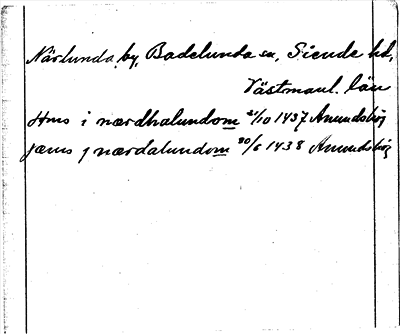 Närlunda by, Badelunda sn, Siende hd,
Västmanl. län
Hms i nærdhalundom 21/10 1437 Amundsbiög
jæms j nærdalundom 30/6 1438 Amundsbiög